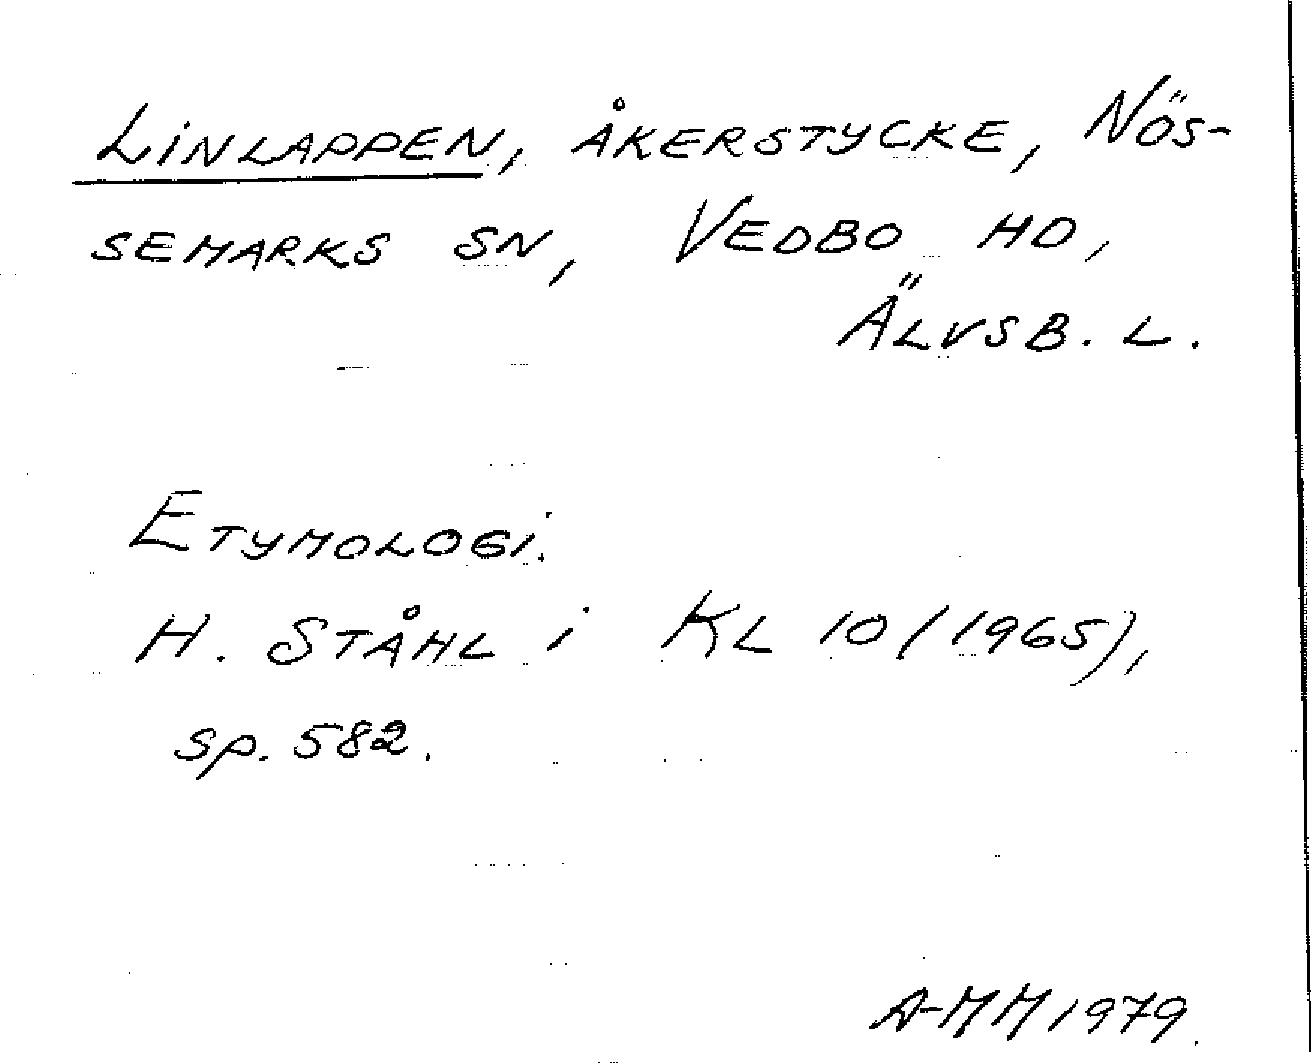 LINLAPPEN, ÅKERSTYCKE, NÖS-
SEMARKS SN, VEDBO HD,
ÄLVSB. L.
ETYMOLOGI.
H. STÅHL i KL 10 (1965),
sp. 582.
A-MM 1979.